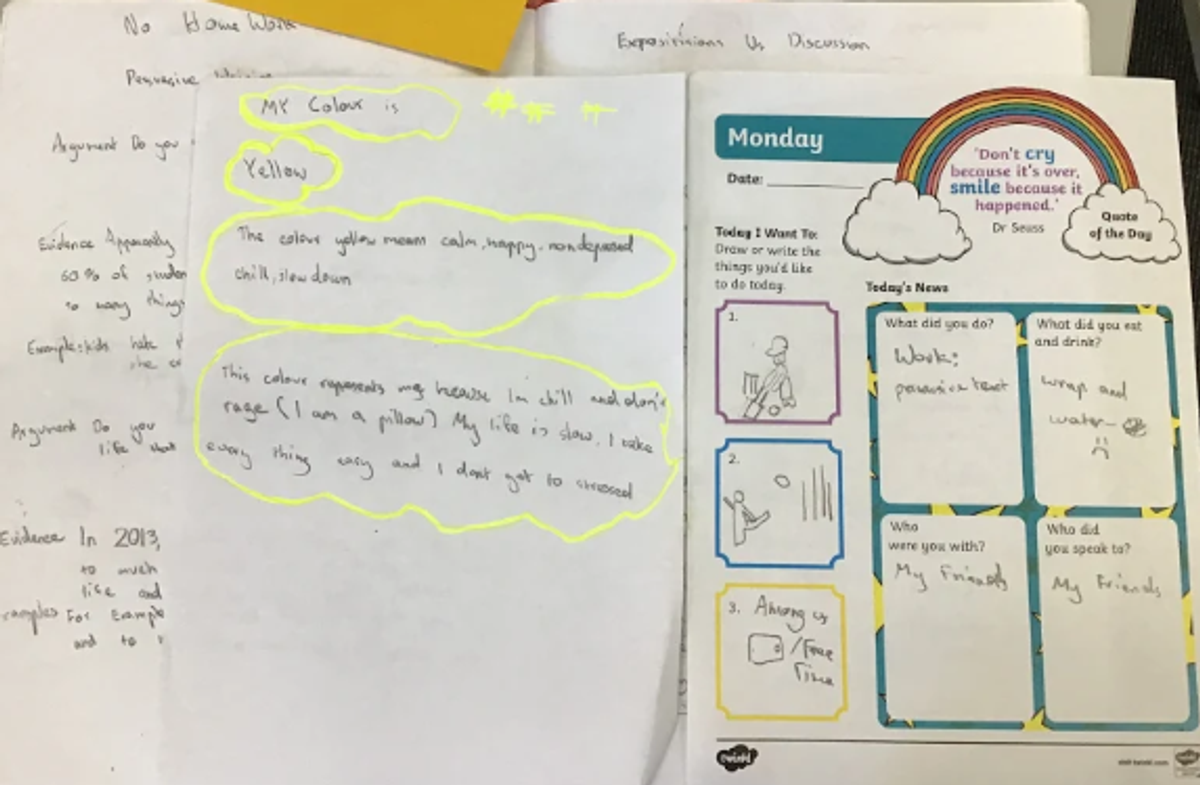 No Home Work
Persuasive
Argument Do you
Evidence Apparently
60% of studen
so many things
Example: kids hate
the
Argument Do you
life that
Evidence In 2013,
to much
life and
For Example
and to
Expositinians Vs Discussion
MY Colour is
Yellow
The colour yellow means calm, happy, nondepresed
chill, slow down
This colour represents me because Im chill and don't
rage (I am a pillow) My life is slow. I take
every thing easy and I dont get to stressed
Monday
Date:
'Don't cry
because it's over,
smile because it
happened.'
Dr Seuss
Quote
of the Day
Today I Want To:
Draw or write the
things you'd like
to do today.
1.
2.
3. Among us
/Free
Time
Today's News
What did you do?
Work:
persusive text
What did you eat
and drink?
wrap and
water
Who
were you with?
My Friends
Who did
you speak to?
My Friends
twinkl
visit twinkl.com